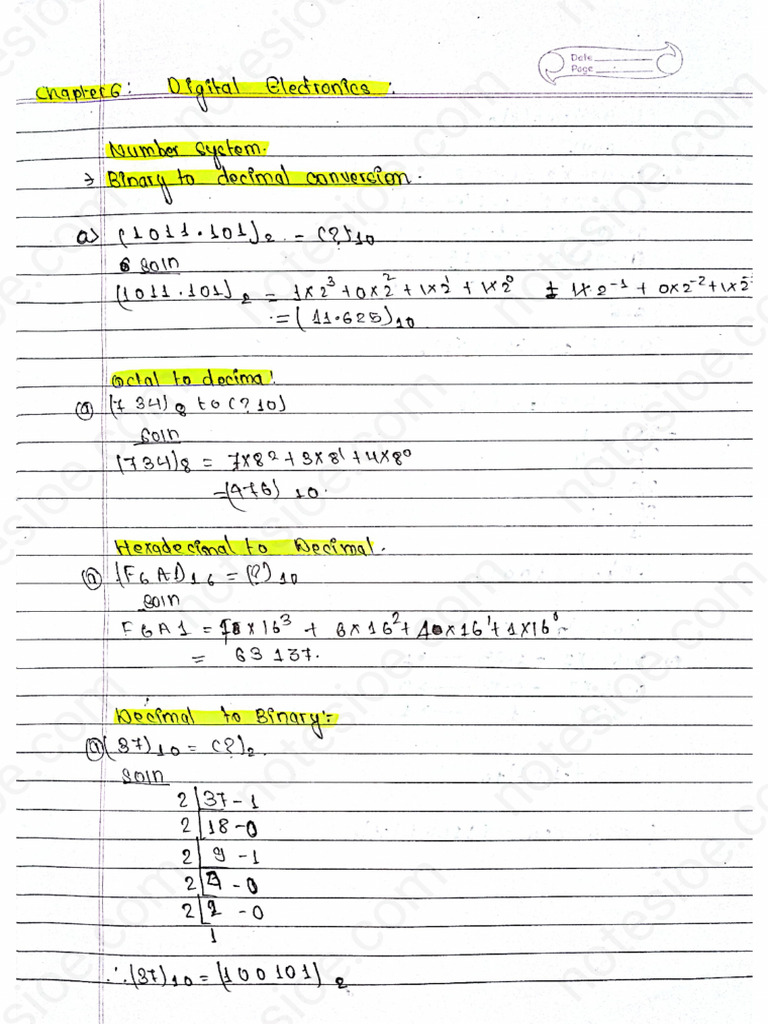 Date
Page
Chapter 6: Digital Electronics:
Number System.
→ Binary to decimal conversion.
a) (1011.101)₂ = (?)₁₀
soln
(1011.101)₂ = 1×2³+0×2²+1×2¹+1×2⁰ + 1×2⁻¹ + 0×2⁻²+1×2⁻
= (11.625)₁₀
Octal to decimal:
(a) (734)₈ to (?10)
soln
(734)₈ = 7×8²+3×8¹+4×8⁰
=(476)₁₀.
Hexadecimal to Decimal.
(a) (F6A1)₁₆ = (?)₁₀
soln
F6A1 = 15×16³ + 6×16²+10×16¹+1×16⁰
= 63137.
Decimal to Binary:-
(a) (37)₁₀ = (?)₂.
soln
2 | 37 - 1
2 | 18 - 0
2 | 9 - 1
2 | 4 - 0
2 | 2 - 0
1
∴ (37)₁₀ = (100101)₂
notesioe.com